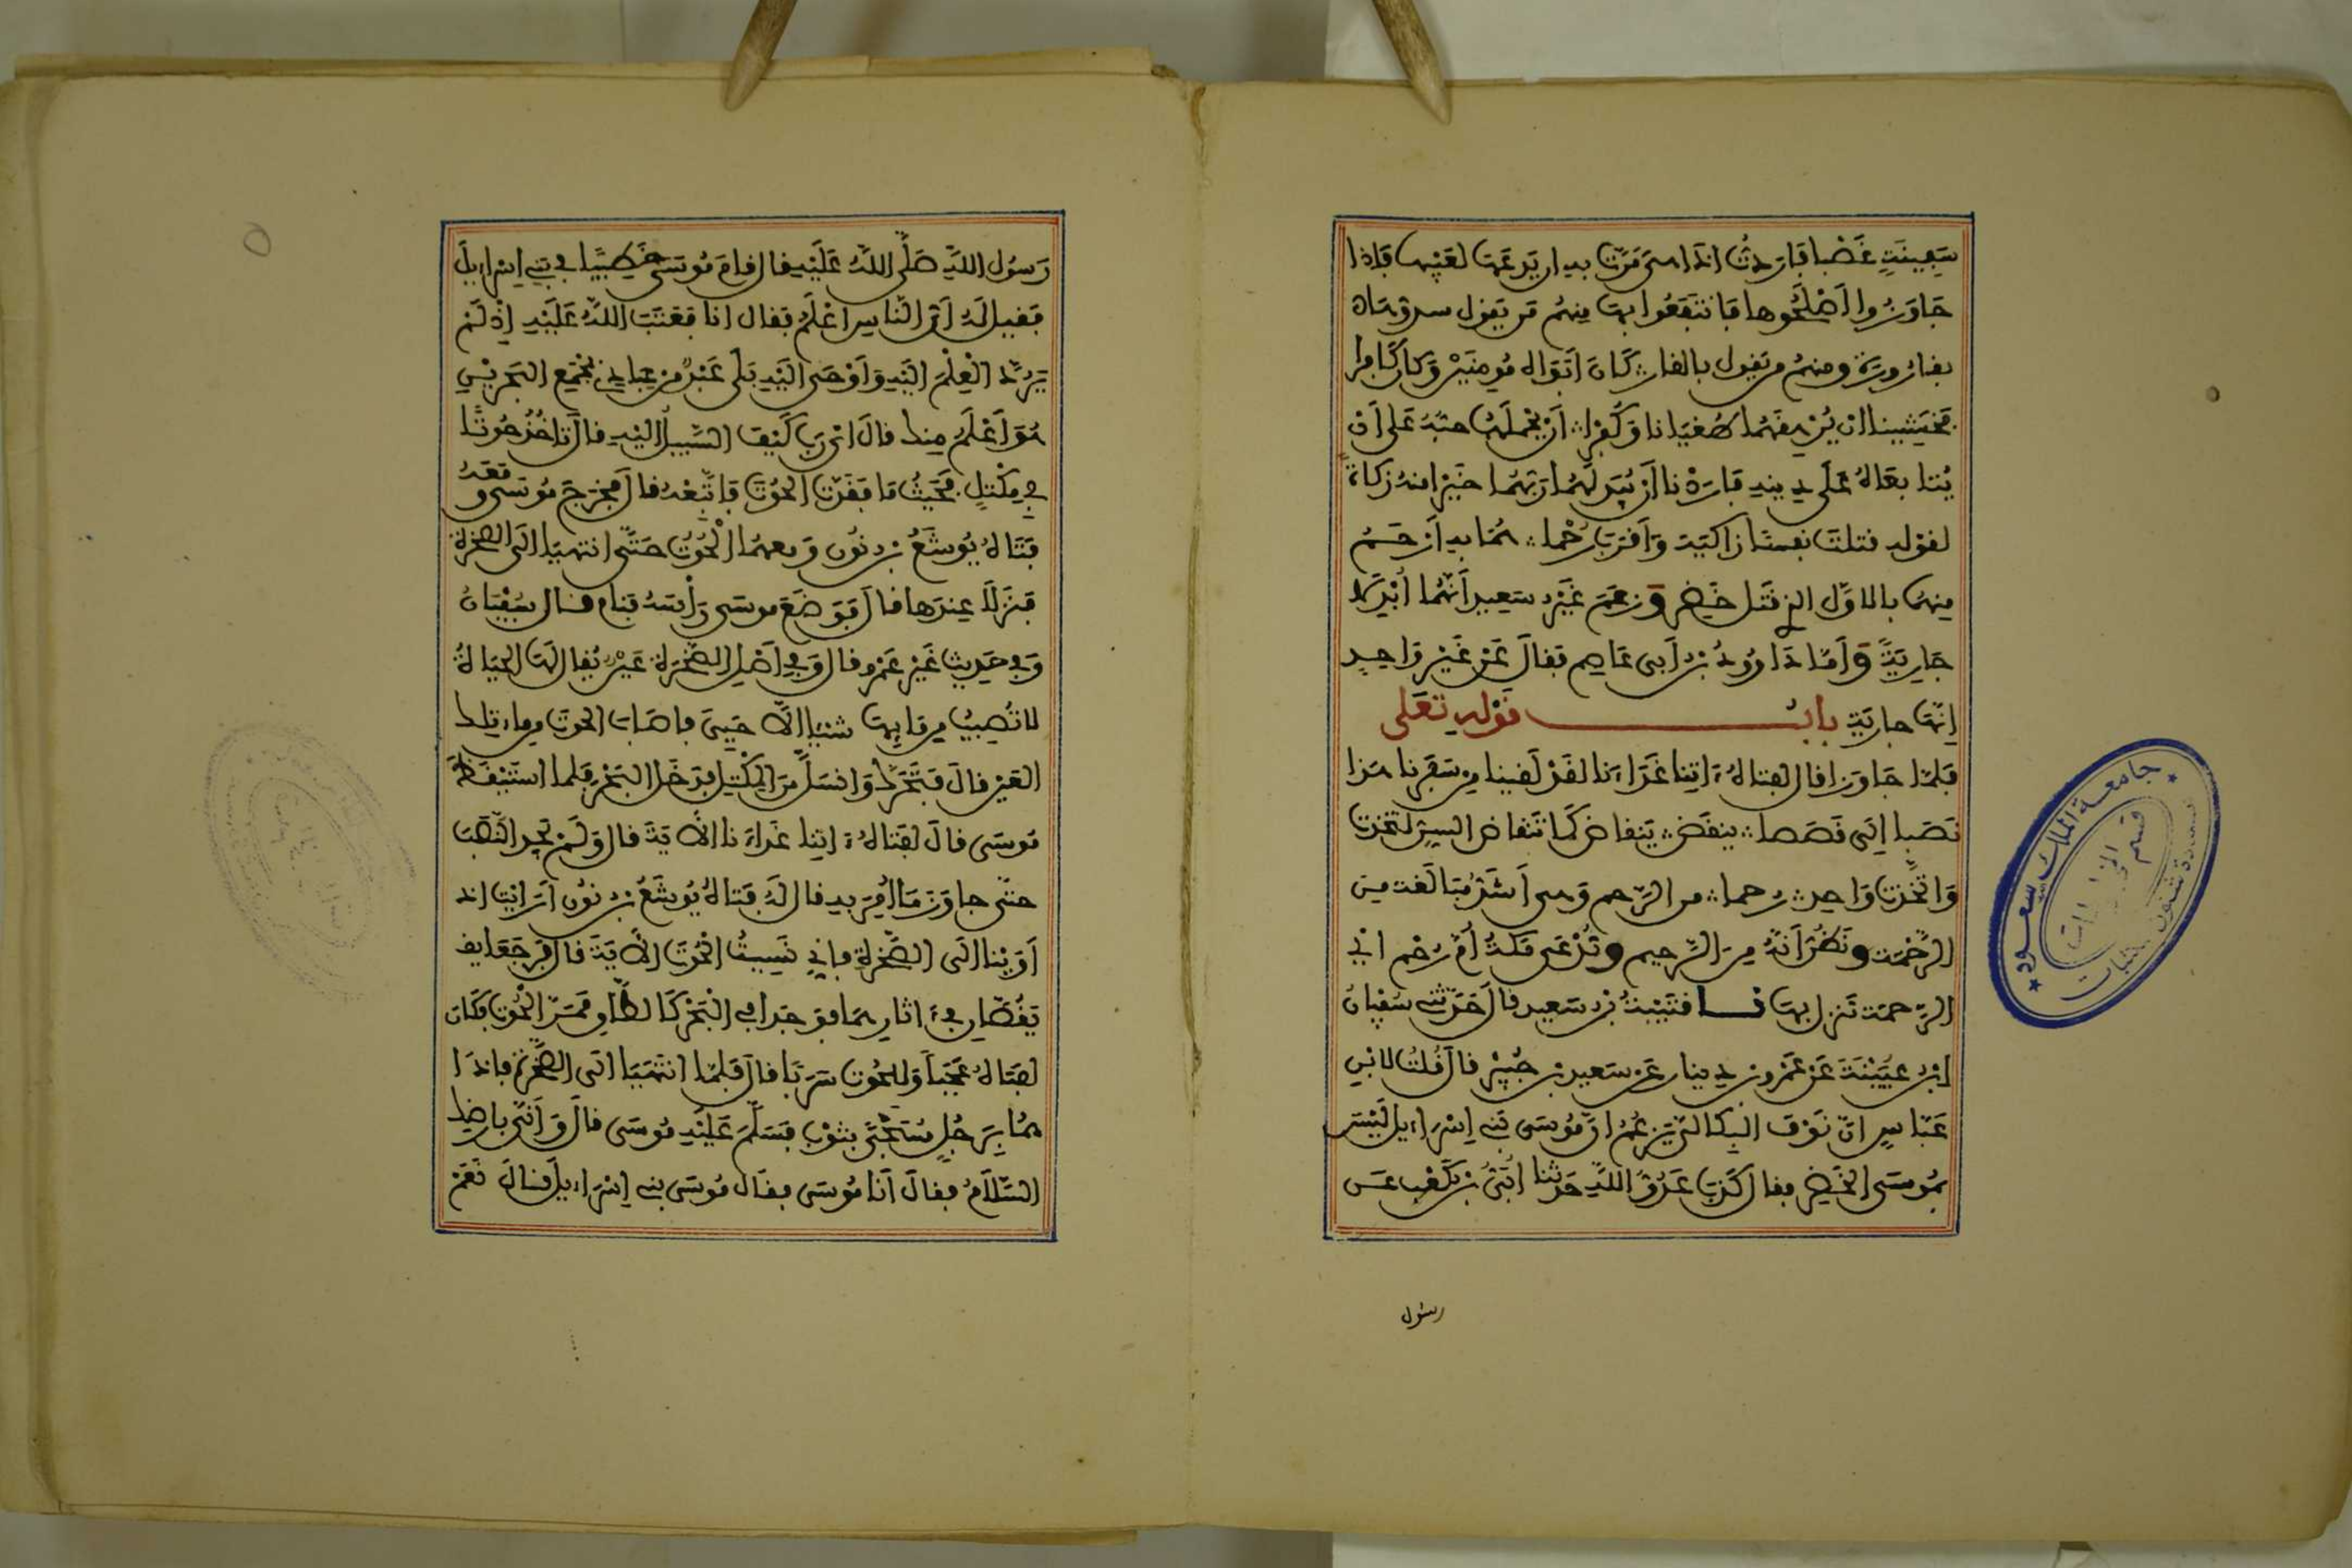 سَفِينَةٍ غَصْبا فاردتُ اذا هى مَرّت به ان يدعها لعيبها فإذا
جاوزوا أصلحوها فانتفعوا بها منهم من يقول سدوها
بقارورة ومنهم من يقول بالقار كان ابواه مومنين وكان كافرا
فخشينا ان يرهقهما طغيانا وكفرا أن يحملهما حبه على أن
يتابعاه على دينه فاردنا أن يبدلهما ربهما خيرا منه زكاة
لقوله قتلت نفسا زاكية وأقرب رحما هما به أرحم
منهما بالاول الذي قتل خضر وزعم غير سعيد أنهما أبدلا
جارية وأما داوود بن أبى عاصم فقال عن غير واحد
إنها جارية باب قوله تعلى
فلما جاوزا قال لفتاه ءاتنا غداءنا لقد لقينا من سفرنا هذا
نصبا إلى قصصا ينقض ينقاض كما تنقاض السن لتخذت
واتخذت واحد رحما من الرحم وهى أشد مبالغة من
الرحمة ونظن أنه من الرحيم وتدعى مكة أم رحم اي
الرحمة تنزل بها نا قتيبة بن سعيد قال حدثني سفيان
ابن عيينة عن عمرو بن دينار عن سعيد بن جبير قال قلت لابن
عباس ان نوف البكالي يزعم ان موسى بني إسراءيل ليس
بموسى الخضر فقال كذب عدو الله حدثنا أبي بن كعب عن
رسول
جامعة الملك سعود
قسم المخطوطات
رسول الله صلى الله عليه قال قام موسى خطيبا في بني إسراءيل
فقيل له أي الناس أعلم فقال انا فعتب الله عليه إذ لم
يرد العلم اليه وأوحى اليه بلى عبد من عبادي بمجمع البحرين
هو أعلم منك قال اي رب كيف السبيل اليه قال تاخذ حوتا
في مكتل فحيث ما فقدت الحوت فاتبعه قال فخرج موسى ومعه
فتاه يوشع بن نون ومعهما الحوت حتى انتهيا الى الصخرة
فنزلا عندها قال فوضع موسى رأسه فنام قال سفيان
وفي حديث غير عمرو قال وفي أصل الصخرة عين يقال لها الحياة
لا تصيب من مايها شئيا الا حيي فاصاب الحوت من ماء تلك
العين قال فتحرك وانسل من المكتل فدخل البحر فلما استيقظ
موسى قال لفتاه ءاتنا غداءنا الاية قال ولم يجد النصب
حتى جاوز ما أمر به قال له فتاه يوشع بن نون أرايت اذ
أوينا الى الصخرة فاني نسيت الحوت الاية قال فرجعا
يقصان في ءاثارهما فوجدا في البحر كالطاق ممر الحوت فكان
لفتاه عجبا وللحوت سربا قال فلما انتهيا الى الصخرة فاذا
هما برجل مسجى بثوب فسلم عليه موسى قال وأنى بارضك
السلام فقال أنا موسى فقال موسى بني إسراءيل قال نعم